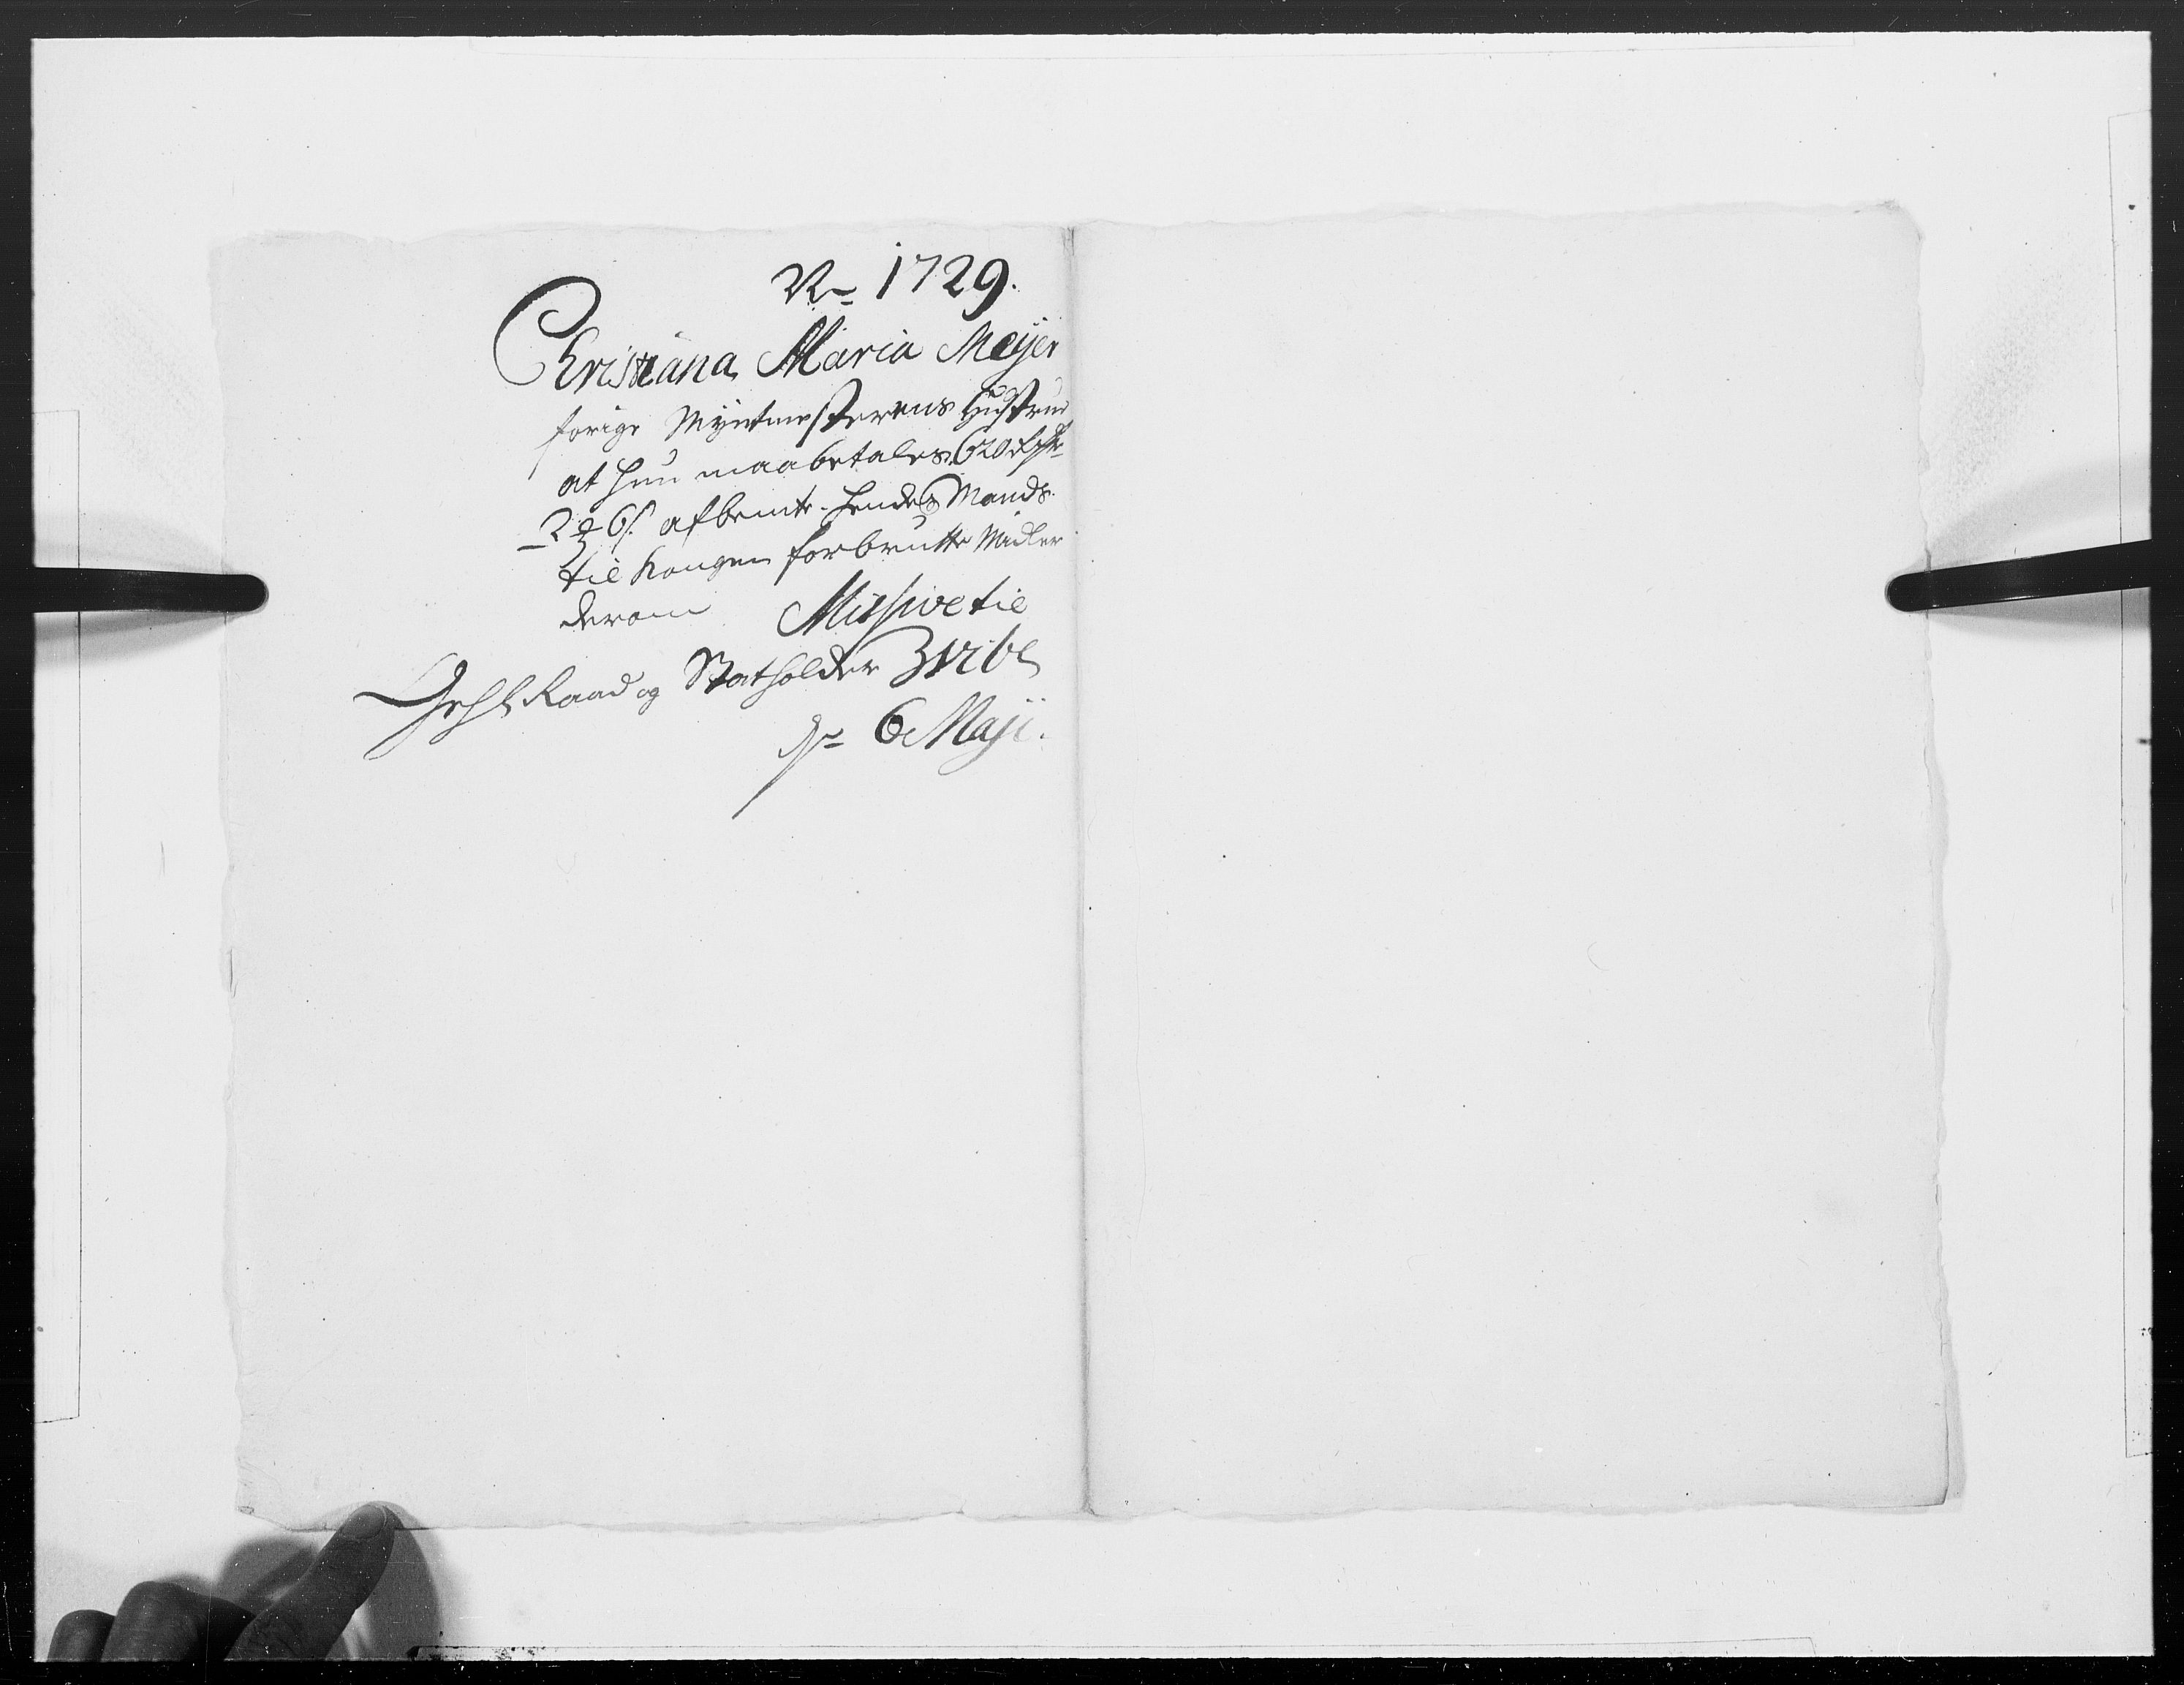 Ao 1729.
Christiana Maria Meyer
forige Myntmesterens Hustrue
at hun maa betales 620 rdr
2 ꝶ 6 s. af bemte hendes Mands
til Kongen forbrutte Midler
derom Missive til
Geh: Raad og Statholder Vibe
dn 6 Maji.